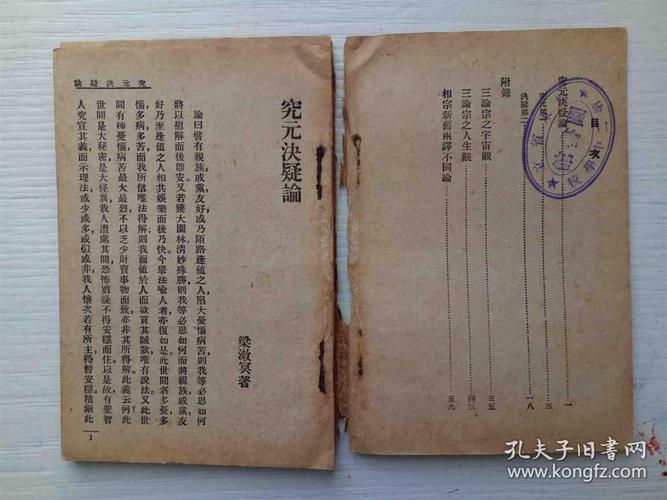 目次
究元決疑論……一
究元第一……三
決疑第二……一八
附錄
三論宗之宇宙觀……三五
三論宗之人生觀……四三
相宗新舊兩譯不同論……五九
究元決疑論
梁漱冥著
論曰譬有親族或黨友好或乃陌路逢値之人陷大憂惱病苦則我等必思如何
將以慰解而後卽安又若獲大園林淸妙殊勝則我等必思如何而將親族或黨友
好乃至逢値之人相共娛樂而後乃快。今舉法喩人者亦復如是。此世間者多憂多
惱多病多苦而我所信唯法得解則我面値於人而欲貢其誠款唯有說法。又此世
間有種憂惱病苦最大最烈不以乏少財寶事物而致亦非其所得解。此義云何?此
世間是大秘密是大怪異我人遭處其間恐怖猶疑不得安穩而住。以是故有聖智
人究宣其義而示理法或少或多或似或非我人懷次若有所主得暫安穩。積漸此
究元決疑論
1
孔夫子旧书网
www.kongfz.com